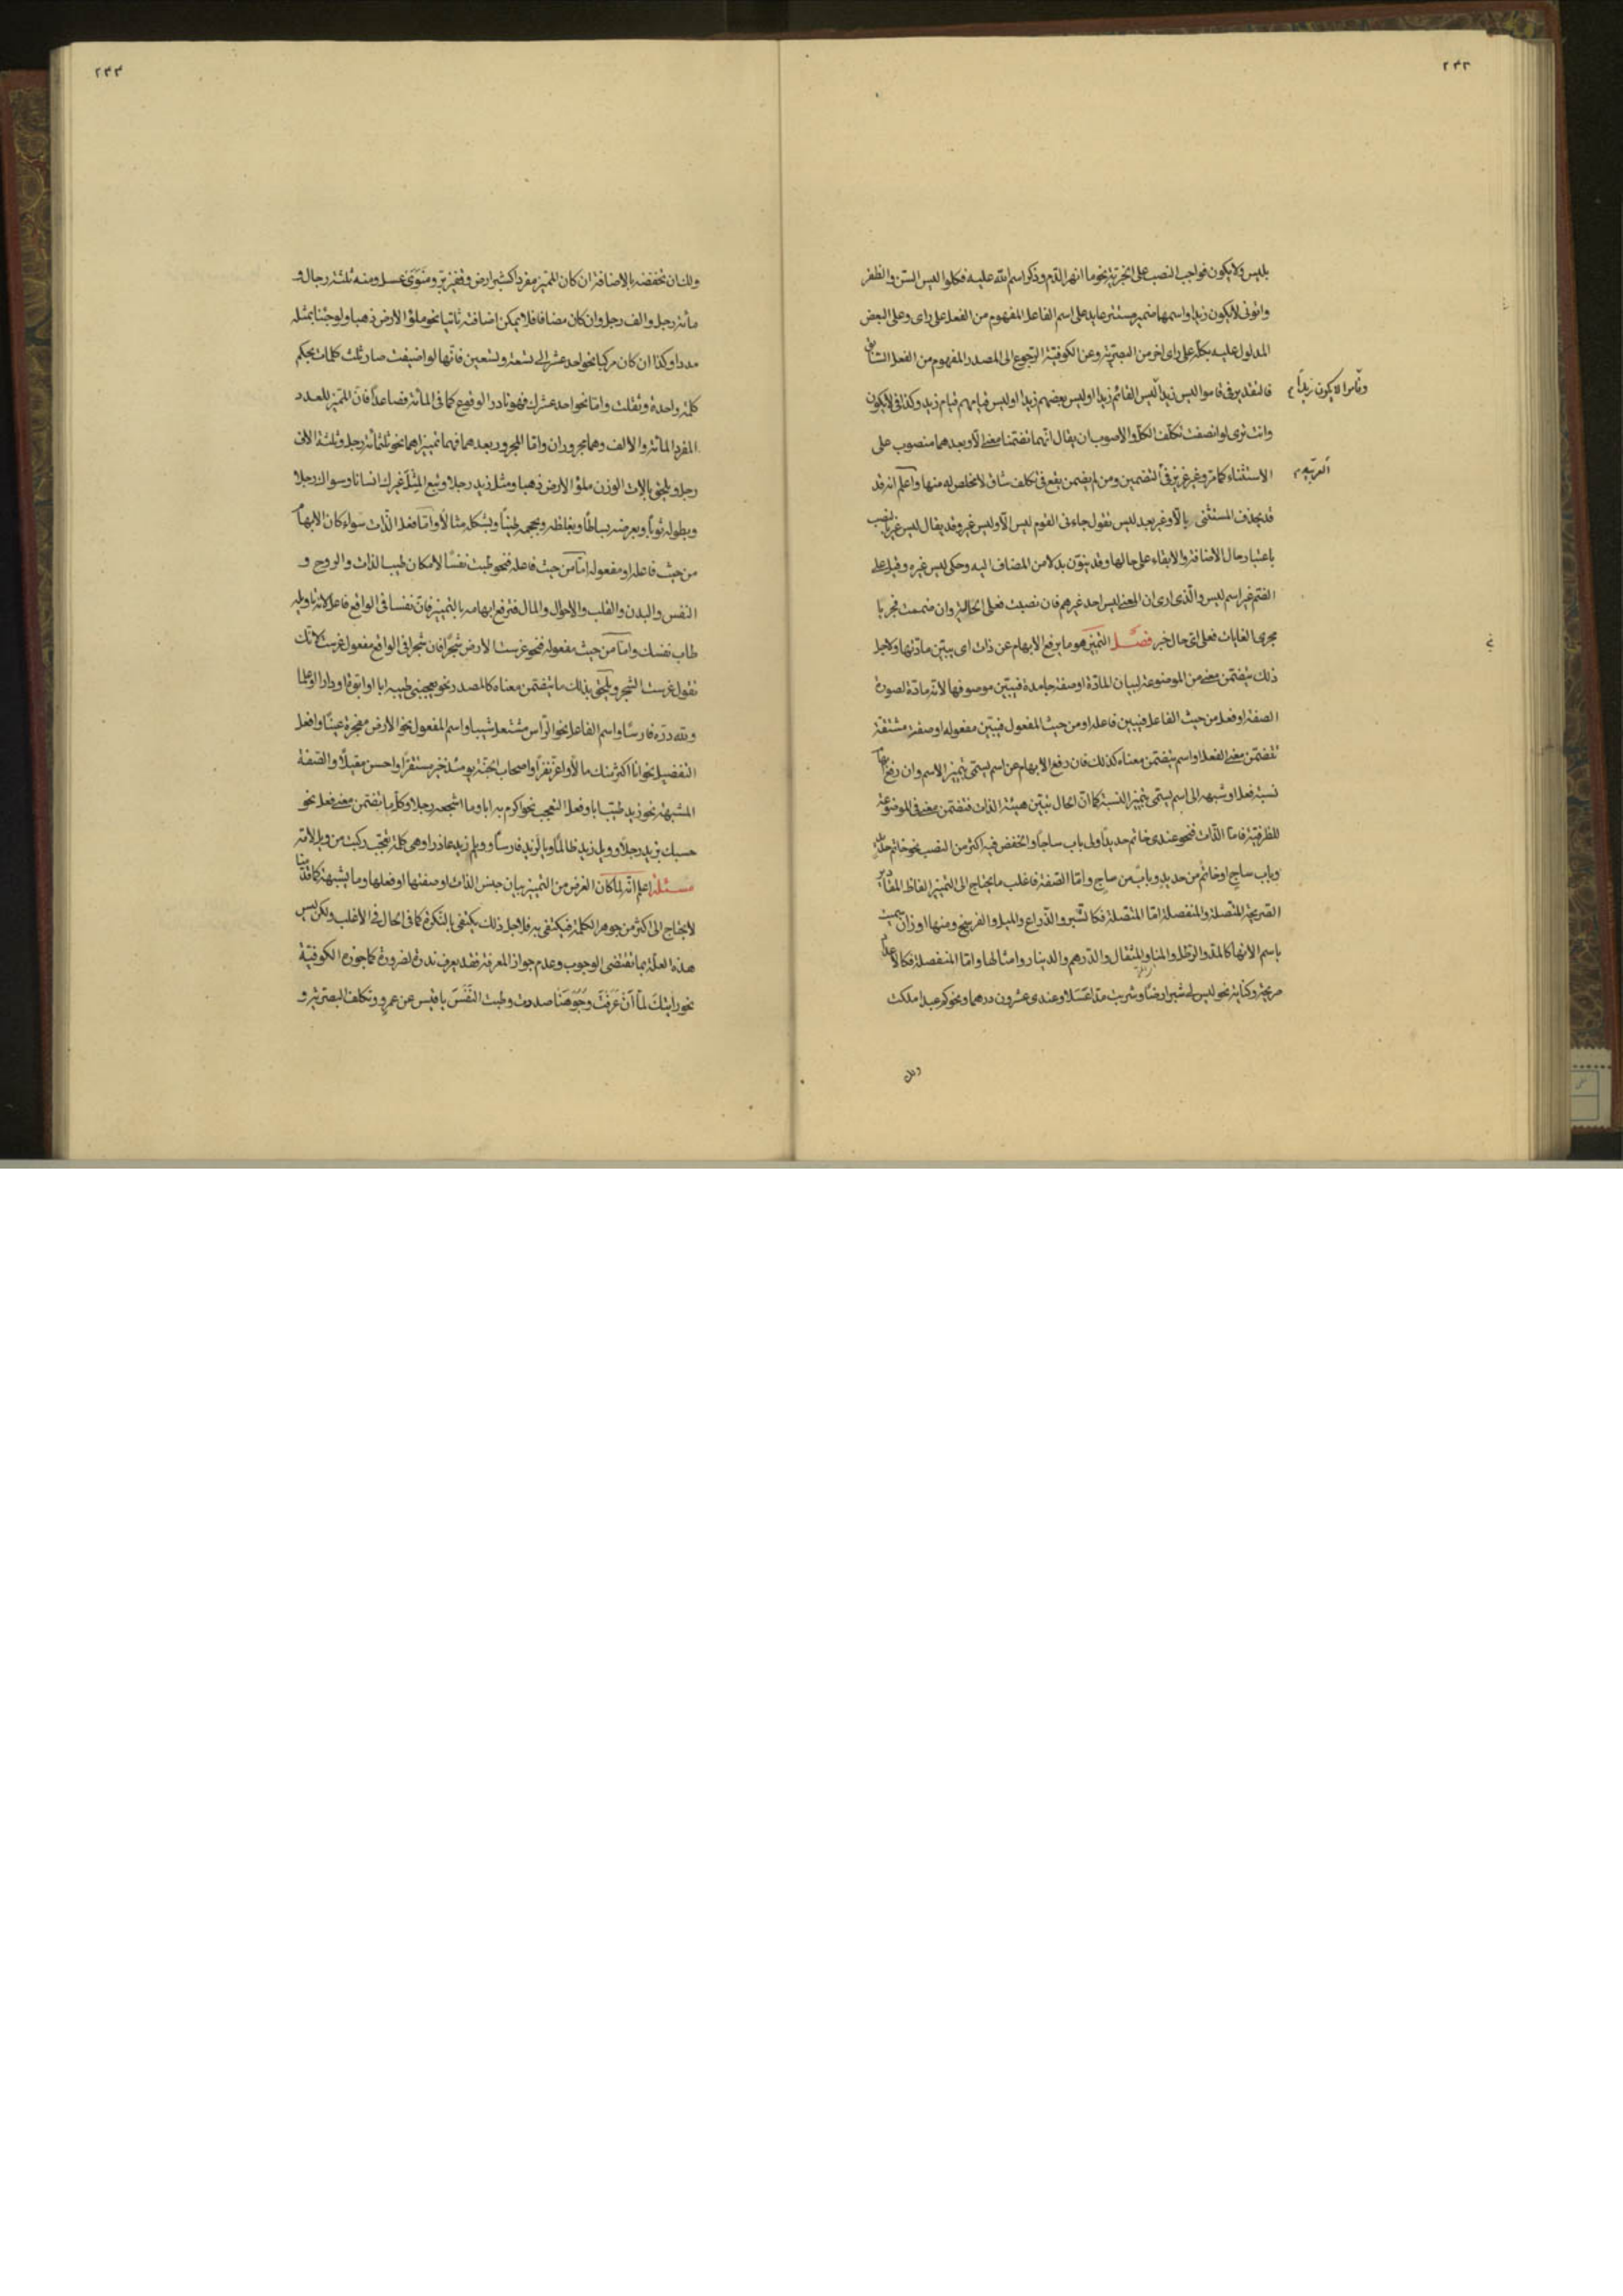 ٢٣٢
بليس ولايكون فواجب النصب على الخبرية نحو ما انهر الدم وذكر اسم الله عليه فكلوا ليس السن والظفر
واتونى لايكون زيدا واسمها ضمير مستتر عايد على اسم الفاعل المفهوم من الفعل على راى وعلى البعض
المدلول عليه بكله على راى اخر من البصرية وعن الكوفية الرجوع الى المصدر المفهوم من الفعل السابق
وقاموا لا يكون زيداً
فالتقدير فى قاموا ليس زيدا ليس القائم زيدا او ليس بعضهم زيدا او ليس قيامهم قيام زيد وكذا فى لايكون
وانت ترى لو انصفت تكلف الكل والاصوب ان يقال انهما تضمنا معنى الا وبعدهما منصوب على
العربية
الاستثناء كما مر وغير غريب فى التضمين ومن لم يضمن يقع فى تكلف شاق لا مخلص له منها واعلم انه قد
قد يحذف المستثنى بالا وغير بعد ليس تقول جاءنى القوم ليس الا وليس غير وقد يقال ليس غير بالنصب
باعتبار حال الاضافة والابقاء على حالها وقد ينون بدلا من المضاف اليه وحكى ليس غيره وقيل على
الضم غير اسم ليس والذى ارى ان المعنى ليس احد غيرهم فان نصبت فعلى الحالية وان ضممت فجريا
مجرى الغايات فعلى اى حال خبر فصل التميز هو ما يرفع الابهام عن ذات اى يبين مادتها ولاجل
ذلك يتضمن معنى من الموضوعة لبيان المادة او صفة جامدة فيبين موصوفها لانه مادة لصورة
الصفة او فعل من حيث الفاعل فيبين فاعله او من حيث المفعول فيبين مفعوله او صفة مشتقة
تتضمن معنى الفعل او اسم يتضمن معناه كذلك فان رفع الابهام عن اسم يسمى بتميز الاسم وان رفع
نسبة فعل او شبهه الى اسم يسمى بتميز النسبة كما ان الحال يبين هيئة الذات فتضمن معنى فى الموضوعة
للظرفية فاما الذات فنحو عندى خاتم حديدا ولى باب ساجا والخفض فيه اكثر من النصب نحو خاتم حديد
وباب ساج او خاتم من حديد وباب من ساج واما الصفة فاغلب ما يحتاج الى التميز الفاظ المقادير
الصريحة المتصلة والمنفصلة اما المتصلة فكالشبر والذراع والميل والفرسخ ومنها اوزان سميت
باسم الاتها كالمد والرطل والمنا والمثقال والدرهم والدينار وامثالها واما المنفصلة فكالاعداد
صريحة وكناية نحو ليس له شبر ارضا وشربت مدا عسلا وعندى عشرون درهما ونحو كم عبدا ملكت
ولك
٢٣٣
ولك ان تخفضه بالاضافة ان كان المميز مفردا كشبر ارض وقفيز بر ومنوى عسل ومنه ثلثة رجال و
مائة رجل والف رجل وان كان مضافا فلا يمكن اضافته ثانيا نحو ملؤ الارض ذهبا ولو جئنا بمثله
مددا وكذا ان كان مركبا نحو احد عشر الى تسعة وتسعين فانها لو اضيفت صار ثلث كلمات بحكم
كلمة واحدة وثقلت واما نحو احد عشرك فهو نادر الوقوع كما فى المائة فصاعدا فان المميز للعدد
المفرد المائة والالف وهما مجروران واما المجرور بعدهما فهما تميزاهما نحو ثلثمائة رجل وثلثة الاف
رجل ويلحق بالات الوزن ملؤ الارض ذهبا ومثل زيد رجلا وتبع المثل غيرك انسانا وسواك رجلا
وبطوله ثوبا وبعرضه بساطا وبغلظه وبحجمه طينا وبشكله مثالا واما فعل الذات سواء كان الابهام
من حيث فاعله او مفعوله اما من حيث فاعله فنحو طبت نفسا لامكان طيب الذات والروح و
النفس والبدن والقلب والاحوال والمال فترفع ابهامه بالتميز فان نفسا فى الواقع فاعل لانه تاويله
طاب نفسك واما من حيث مفعوله فنحو غرست الارض شجرا فان شجرا فى الواقع مفعول غرست لانك
تقول غرست الشجر ويلحق بذلك ما يتضمن معناه كالمصدر نحو يعجبنى طيبه ابا او ابوة او دارا او علما
ولله دره فارسا واسم الفاعل نحو الراس مشتعل شيبا واسم المفعول نحو الارض مفجرة عينا وافعل
التفضيل نحو انا اكثر منك مالا واعز نفرا واصحاب الجنة يومئذ خير مستقرا واحسن مقيلا والصفة
المشبهة نحو زيد طيب ابا وفعل التعجب نحو اكرم به ابا وما اشجعه رجلا وكل ما يتضمن معنى فعل نحو
حسبك بزيد رجلا وويل زيد ظالما ويا لزيد فارسا وويلم زيد غادرا وهى كلمة تعجب ركبت من ويل لامه
مسئلة اعلم انه لما كان الغرض من التميز بيان جنس الذات او صفتها او فعلها وما يشبهه كما قدمنا
لا يحتاج الى اكثر من جوهر الكلمة فيكتفى به فلاجل ذلك يكتفى بالنكرة كما فى الحال فى الاغلب ولكن ليس
هذه العلة بما تقتضى الوجوب وعدم جواز المعرفة فقد يعرف ندرة لضرورة كما جوزه الكوفية
نحو رايتك لما ان عرفت وجوهنا صددت وطبت النفس يا قيس عن عمرو وتكلف البصرية و